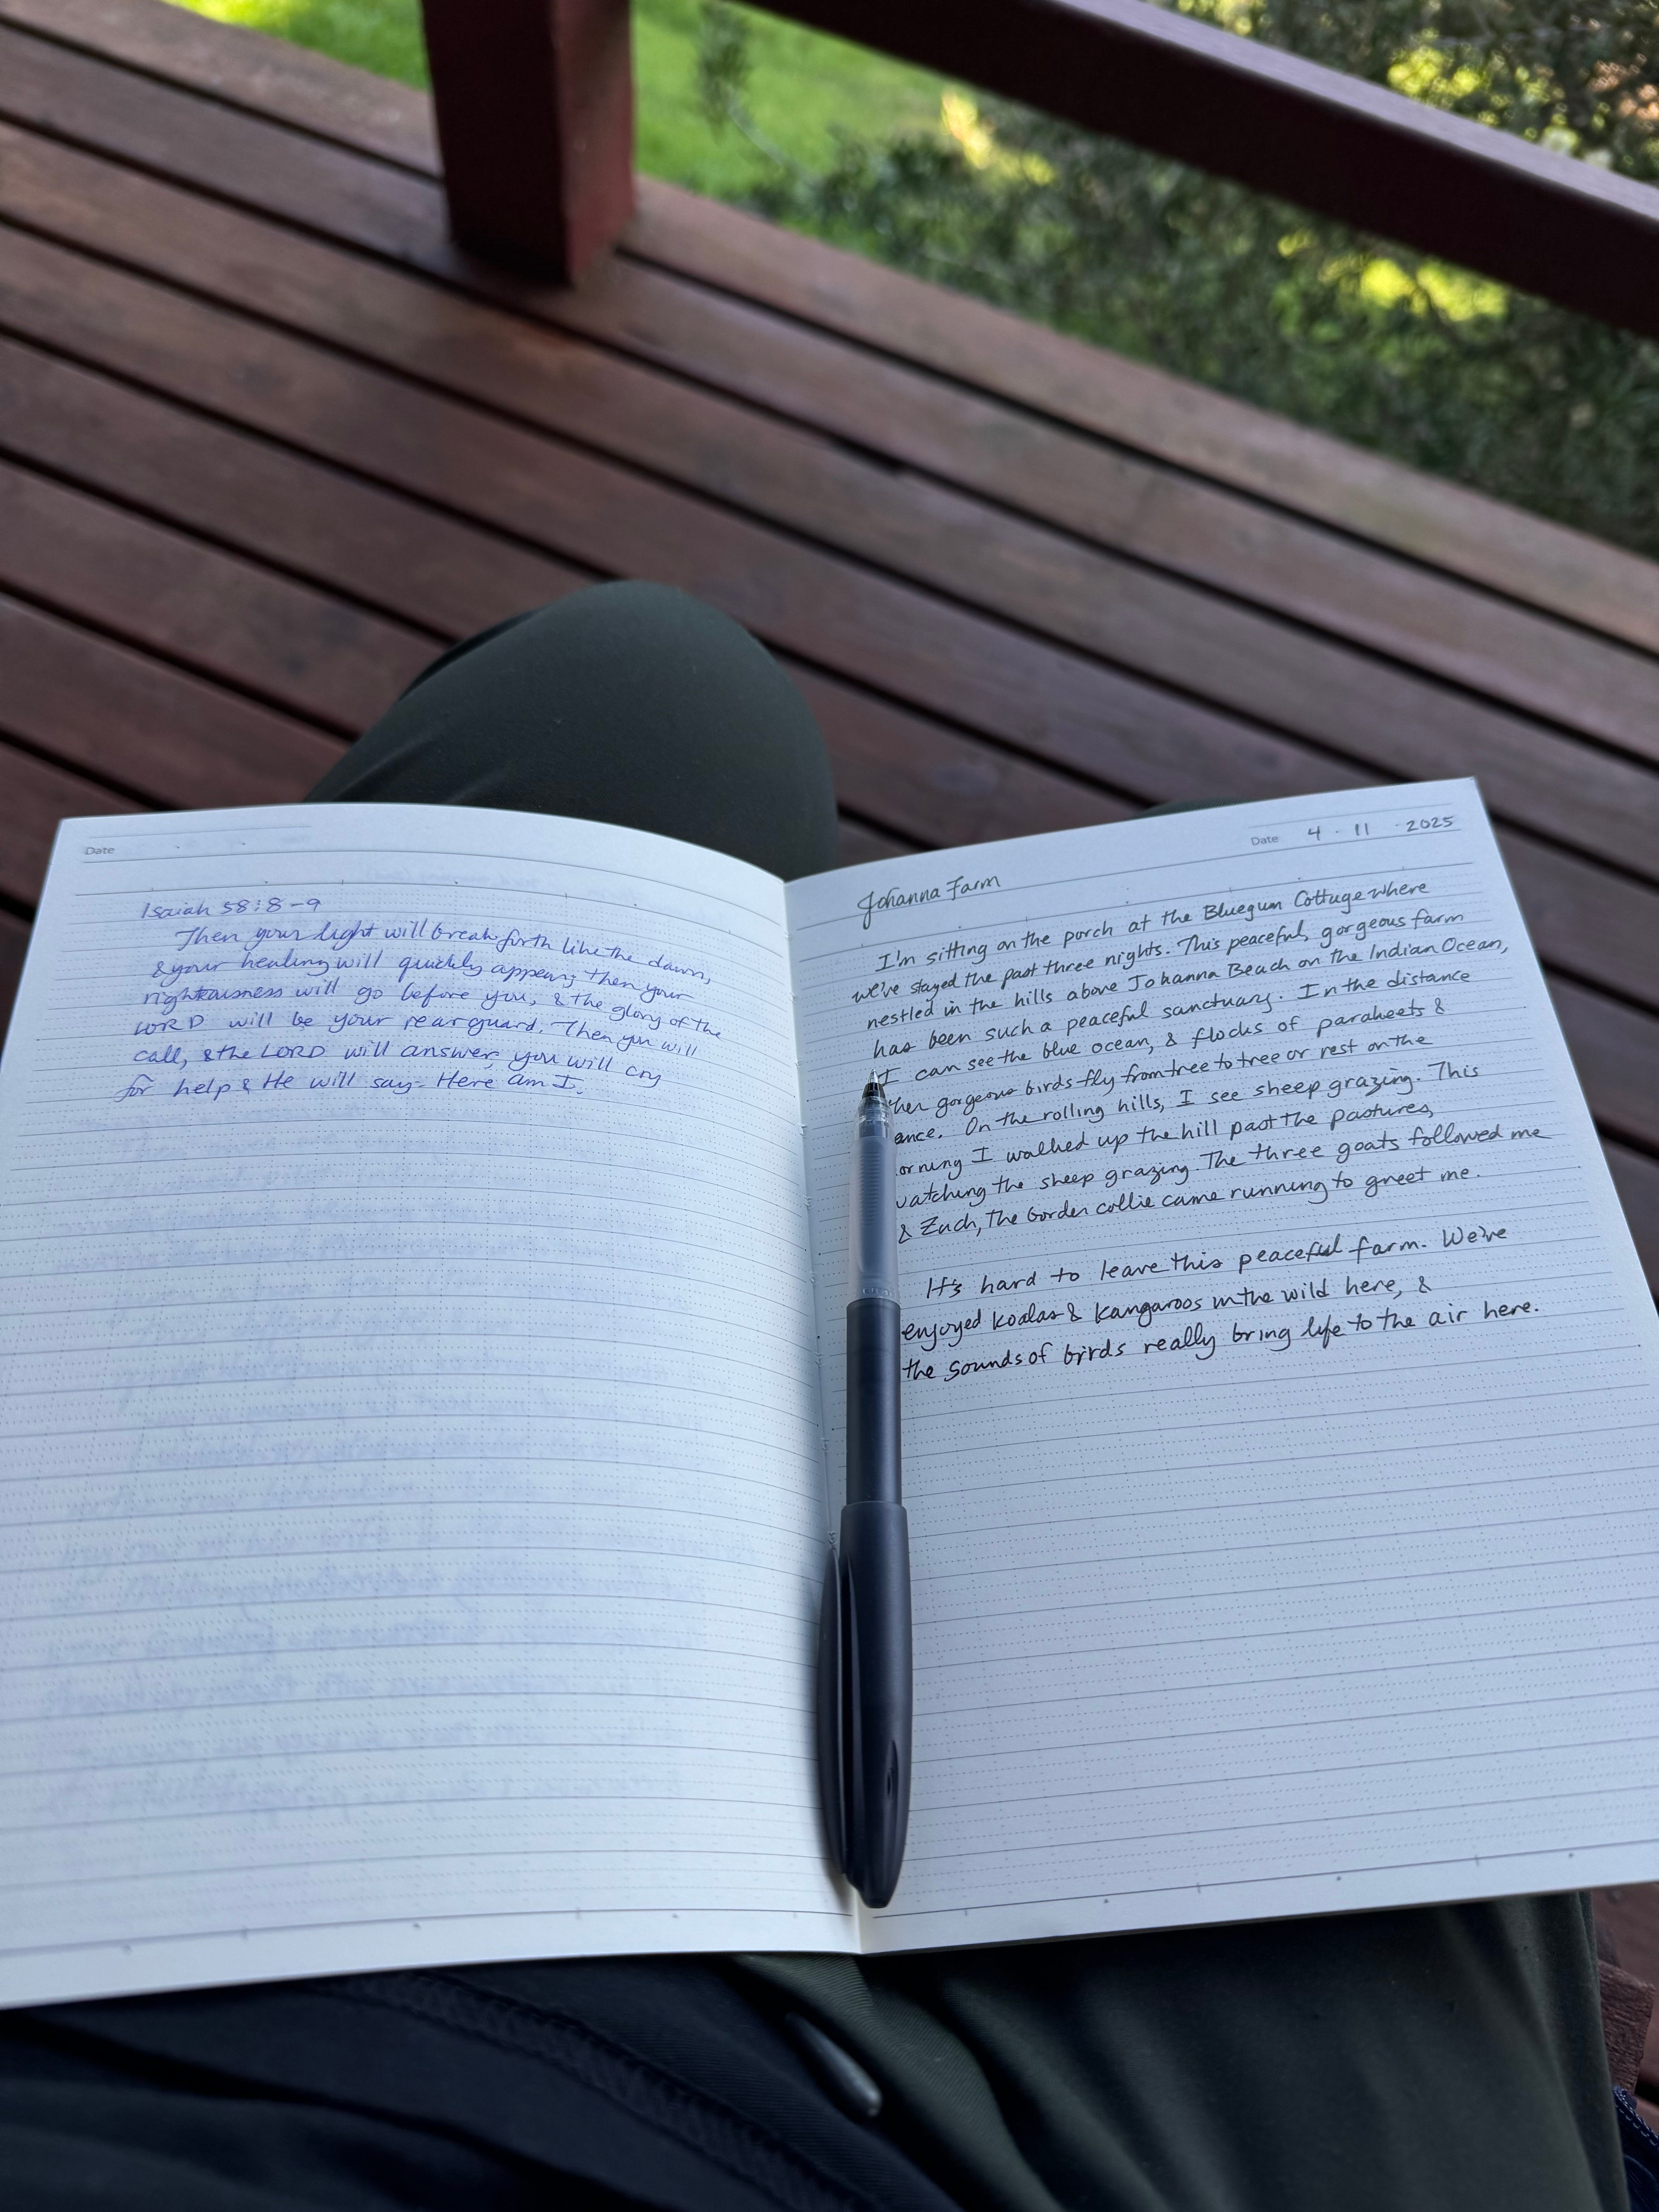 Date
Isaiah 58:8-9
Then your light will break forth like the dawn,
& your healing will quickly appear; then your
righteousness will go before you, & the glory of the
LORD will be your rear guard. Then you will
call, & the LORD will answer, you will cry
for help & He will say- Here am I.
Date 4 · 11 · 2025
Johanna Farm
I'm sitting on the porch at the Bluegum Cottage where
we've stayed the past three nights. This peaceful, gorgeous farm
nestled in the hills above Johanna Beach on the Indian Ocean,
has been such a peaceful sanctuary. In the distance
I can see the blue ocean, & flocks of parakeets &
ther gorgeous birds fly from tree to tree or rest on the
ence. On the rolling hills, I see sheep grazing. This
orning I walked up the hill past the pastures,
watching the sheep grazing. The three goats followed me
& Zach, the border collie came running to greet me.
It's hard to leave this peaceful farm. We've
enjoyed koalas & kangaroos in the wild here, &
the sounds of birds really bring life to the air here.